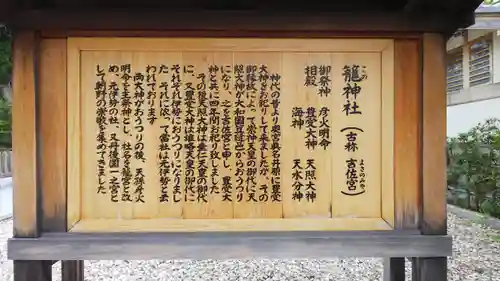 籠神社（古称 吉佐宮）
この
よさのみや
御祭神 彦火明命
相殿 豊受大神 天照大神
海神 天水分神
神代の昔より奥宮真名井原に豊受
大神をお祀りして来ましたが、その
御縁故によって崇神天皇の御代に天
照大神が大和国笠縫邑からおうつり
になり、之を吉佐宮と申し、豊受大
神と共に四年間お祀り致しました
その後天照大神は垂仁天皇の御代
に、又豊受大神は雄略天皇の御代に
それぞれ伊勢におうつりになりまし
た。それに依って當社は元伊勢と云
われております
両大神がおうつりの後、天孫彦火
明命を主祭神とし、社名を籠宮と改
め、元伊勢の社、又丹後國一之宮と
して朝野の崇敬を集めてきました